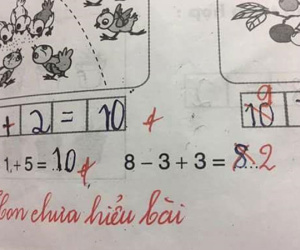 + 2 = 10 10 9
1 + 5 = 10 8 - 3 + 3 = 8 2
Con chưa hiểu bài